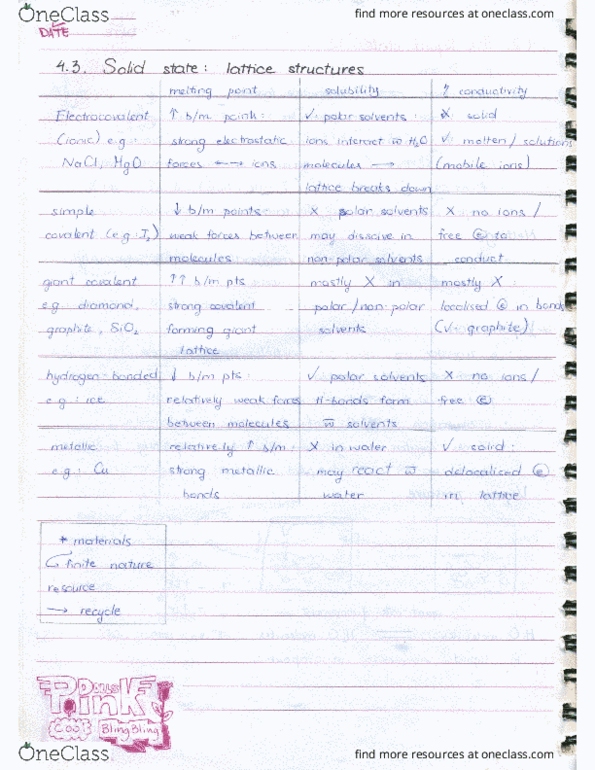 OneClass
find more resources at oneclass.com
DATE
4.3. Solid state: lattice structures
melting point solubility conductivity
Electrocovalent ↑ b/m point: ✓ polar solvents: x solid
(ionic) e.g.: strong electrostatic ions interact w̄ H₂O ✓ molten / solutions
NaCl, MgO forces ←→ ions molecules → (mobile ions)
lattice breaks down
simple ↓ b/m points X polar solvents X no ions /
covalent (e.g.: I₂) weak forces between may dissolve in free e to
molecules non-polar solvents conduct
giant covalent ↑↑ b/m pts mostly X in mostly X:
e.g. diamond, strong covalent polar/non-polar localised e in bonds
graphite, SiO₂ forming giant solvents (✓ graphite)
lattice
hydrogen-bonded ↓ b/m pts: ✓ polar solvents X no ions /
e.g.: ice relatively weak forces H-bonds form free e
between molecules w̄ solvents
metallic relatively ↑ b/m: X in water ✓ solid:
e.g.: Cu strong metallic may react w̄ delocalised e
bonds water in lattice
* materials
finite nature
resource
→ recycle
DOLLS
Pink
Cool BlingBling
OneClass
find more resources at oneclass.com